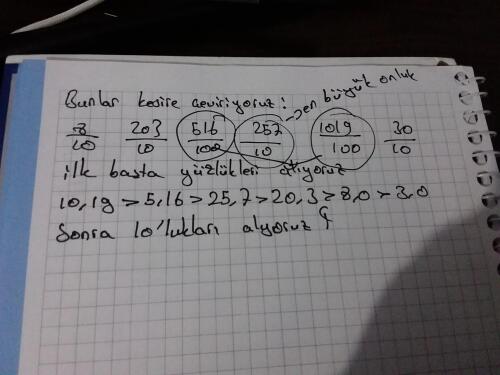 Bunlar kesire çeviriyoruz!
8/10 203/10 516/100 257/10 → en büyük onluk 1019/100 30/10
ilk başta yüzlükleri alıyoruz
10,19 > 5,16 > 25,7 > 20,3 > 8,0 > 3,0
Sonra 10'lukları alıyoruz